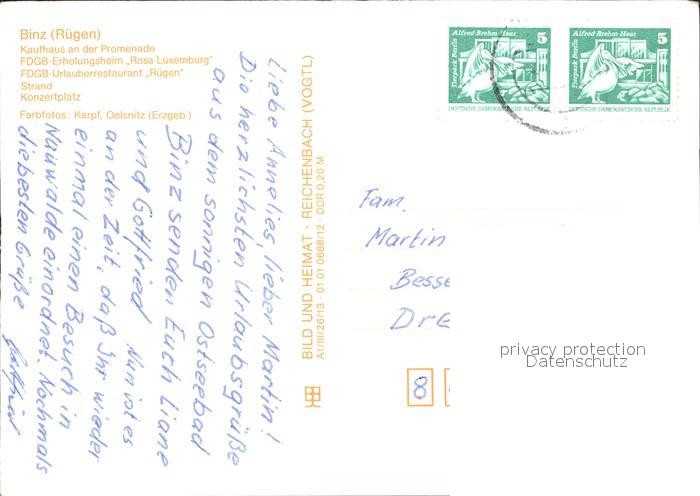 Binz (Rügen)
Kaufhaus an der Promenade
FDGB-Erholungsheim „Rosa Luxemburg"
FDGB-Urlauberrestaurant „Rügen"
Strand
Konzertplatz
Farbfotos: Karpf, Oelsnitz (Erzgeb.)
Liebe Annelies, lieber Martin!
Die herzlichsten Urlaubsgrüße
aus dem sonnigen Ostseebad
Binz senden Euch Liane
und Gottfried. Nun ist es
an der Zeit, daß Ihr wieder
einmal einen Besuch in
Nauwalde einordnet. Nochmals
die besten Grüße
Gottfried
BILD UND HEIMAT · REICHENBACH (VOGTL)
A1/III/26/13 · 01 01 0688/12 · DDR 0,20 M
Alfred Brehm Haus
5
Tierpark Berlin
DEUTSCHE DEMOKRATISCHE REPUBLIK
Alfred Brehm Haus
5
Tierpark Berlin
DEUTSCHE DEMOKRATISCHE REPUBLIK
Fam.
Martin
Besse
Dre
8
privacy protection
Datenschutz